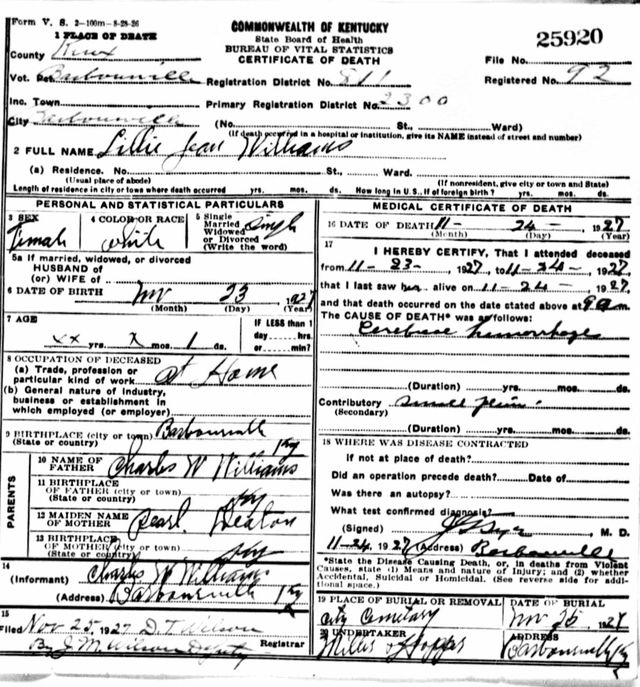 Form V. S. 2-100m-8-28-26
COMMONWEALTH OF KENTUCKY
State Board of Health
BUREAU OF VITAL STATISTICS
CERTIFICATE OF DEATH
25920
1 PLACE OF DEATH
County Knox
File No.
Vot. Barbourville
Registration District No. 811
Registered No. 92
Inc. Town
Primary Registration District No. 2300
City Barbourville
(No. St., Ward)
(If death occurred in a hospital or institution, give its NAME instead of street and number)
2 FULL NAME Lillie Jean Williams
(a) Residence. No. St., Ward.
(Usual place of abode)
(If nonresident, give city or town and State)
Length of residence in city or town where death occurred yrs. mos. ds. How long in U.S., if of foreign birth? yrs. mos. ds.
PERSONAL AND STATISTICAL PARTICULARS
3 SEX
Female
4 COLOR OR RACE
White
5 Single
Married
Widowed
or Divorced
(Write the word)
Single
5a If married, widowed, or divorced
HUSBAND of
(or) WIFE of
6 DATE OF BIRTH Nov 23 1927
(Month) (Day) (Year)
7 AGE
xx yrs. x mos. 1 ds.
IF LESS than 1
day hrs.
or min.?
8 OCCUPATION OF DECEASED
(a) Trade, profession or
particular kind of work At Home
(b) General nature of industry,
business or establishment in
which employed (or employer)
9 BIRTHPLACE (city or town) Barbourville
(State or country) Ky
PARENTS
10 NAME OF
FATHER Charles W Williams
11 BIRTHPLACE
OF FATHER (city or town)
(State or country) Ky
12 MAIDEN NAME
OF MOTHER Pearl Deaton
13 BIRTHPLACE
OF MOTHER (city or town)
(State or country) Ky
14
(Informant) Charles W Williams
(Address) Barbourville Ky
15
Filed Nov 25, 1927 D.T. Wilson
Registrar
By J M Wilson Deputy
MEDICAL CERTIFICATE OF DEATH
16 DATE OF DEATH 11- 24- 1927
(Month) (Day) (Year)
17
I HEREBY CERTIFY, That I attended deceased
from 11-23-, 1927, to 11-24-, 1927,
that I last saw her alive on 11-24-, 1927,
and that death occurred on the date stated above at 9 a m.
The CAUSE OF DEATH* was as follows:
Cerebral hemorrhage
(Duration) yrs. mos. ds.
Contributory
(Secondary)
(Duration) yrs. mos. ds.
18 WHERE WAS DISEASE CONTRACTED
If not at place of death?
Did an operation precede death? Date of
Was there an autopsy?
What test confirmed diagnosis?
(Signed) M. D.
11-24, 1927 (Address) Barbourville
*State the Disease Causing Death, or, in deaths from Violent
Causes, state (1) Means and nature of Injury; and (2) whether
Accidental, Suicidal or Homicidal. (See reverse side for addi-
tional space.)
19 PLACE OF BURIAL OR REMOVAL
City Cemetary
DATE OF BURIAL
Nov 25, 1927
20 UNDERTAKER
Miller
ADDRESS
Barbourville Ky